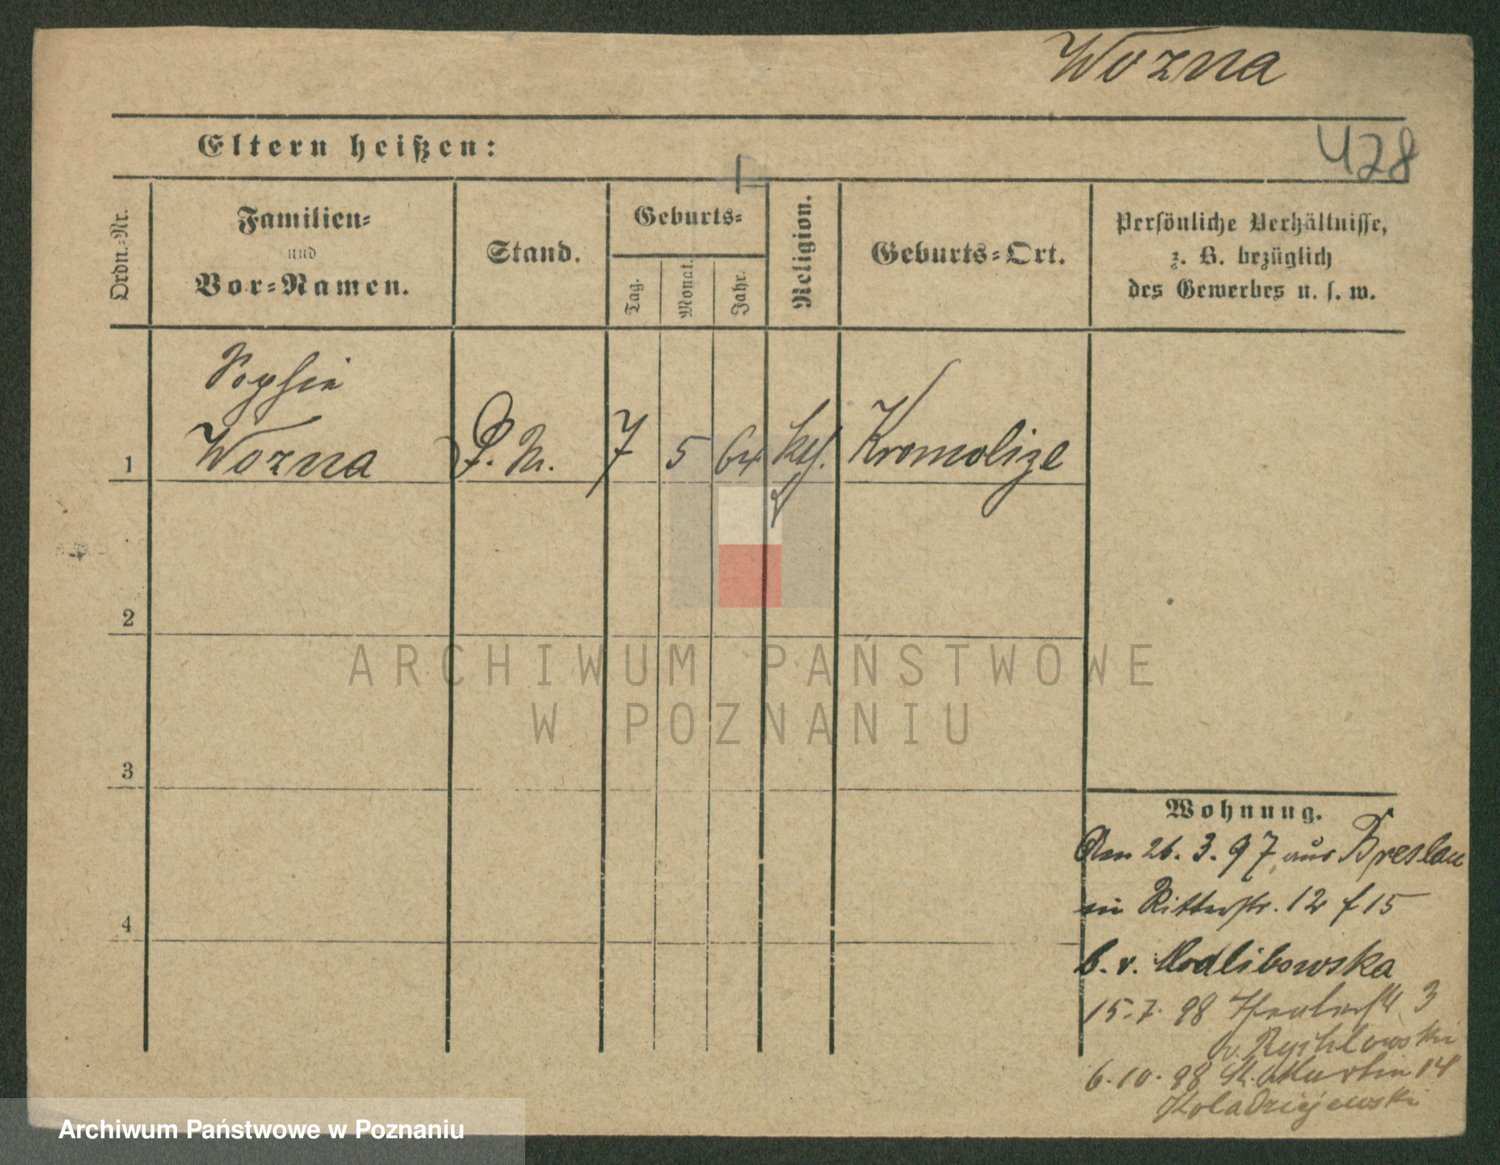 Wozna
Eltern heißen:
428
Ordn.-Nr.
Familien-
und
Vor-Namen.
Stand.
Geburts-
Tag.
Monat.
Jahr.
Religion.
Geburts-Ort.
Persönliche Verhältnisse,
z. B. bezüglich
des Gewerbes u. s. w.
Sophie
1 Wozna P. M. 7 5 64 kth. Kromolize
2
ARCHIWUM PAŃSTWOWE
W POZNANIU
3
Wohnung.
Am 26. 3. 97 aus Breslau
in Ritterstr. 12 f 15
4
b. v. Modlibowska
15.7.98 3
v. Rychlowski
6.10.98 St. Martin 14
Koladziejewski
Archiwum Państwowe w Poznaniu